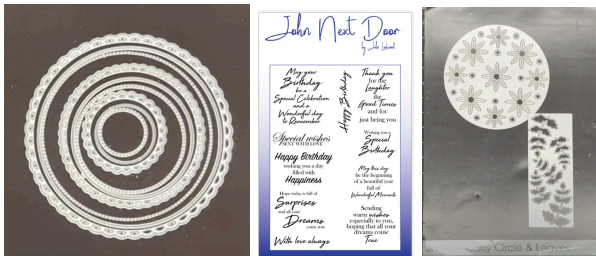 John Next Door
by John Lockwood
May your
Birthday
be a
Special Celebration
and a
Wonderful day
to Remember
Special wishes
SENT WITH LOVE
Happy Birthday
wishing you a day
filled with
Happiness
Hope today is full of
Surprises
and all your
Dreams
come true
With love always
Happy Birthday
Thank you
for the
Laughter
the
Good Times
and for
just being you
Wishing you a
Special
Birthday
May this day
be the beginning
of a beautiful year
full of
Wonderful Moments
Sending
warm wishes
especially to you,
hoping that all your
dreams come
True
Circle & Leaves